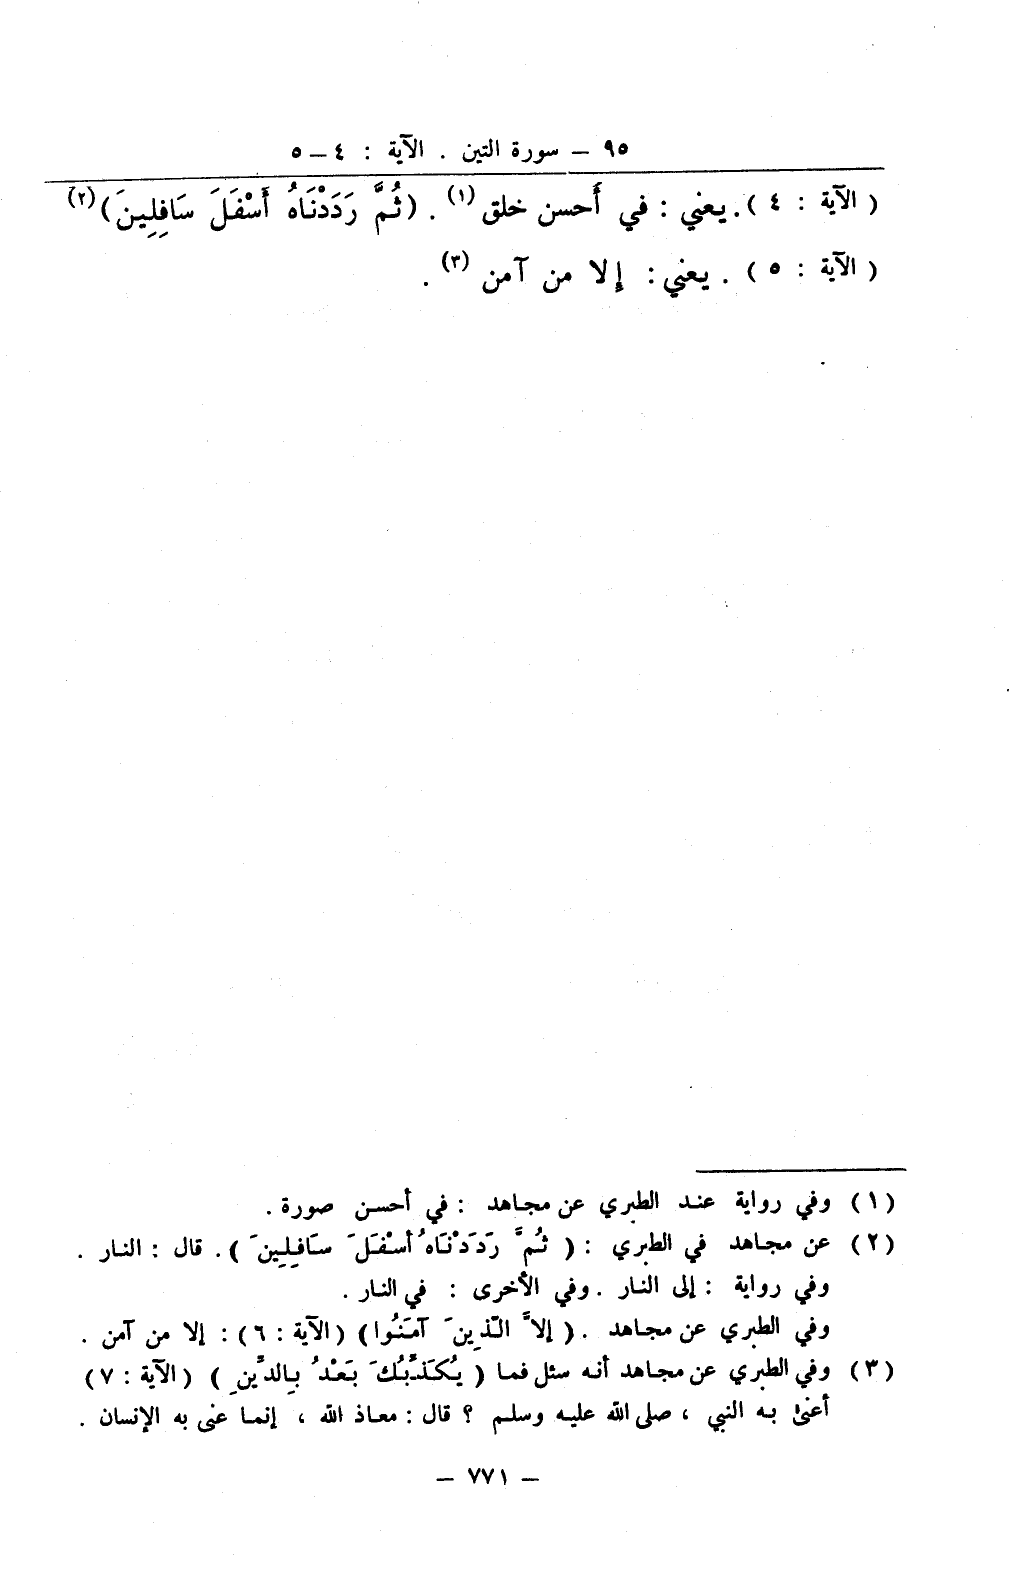 ٩٥ – سورة التين . الآية : ٤ – ٥
( الآية : ٤ ) . يعني : في أَحسن خلق (١) . (ثُمَّ رَدَدْنَاهُ أَسْفَلَ سَافِلِينَ) (٢)
( الآية : ٥ ) . يعني : إِلا من آمن (٣) .
(١) وفي رواية عند الطبري عن مجاهد : في أحسن صورة .
(٢) عن مجاهد في الطبري : ( ثُمَّ رَدَدْنَاهُ أَسْفَلَ سَافِلِينَ ) . قال : النار .
وفي رواية : إلى النار . وفي الأخرى : في النار .
وفي الطبري عن مجاهد . ( إلاَّ الَّذِينَ آمَنُوا ) ( الآية : ٦ ) : إلا من آمن .
(٣) وفي الطبري عن مجاهد أنه سئل فما ( يُكَذِّبُكَ بَعْدُ بِالدِّينِ ) ( الآية : ٧ )
أعنيٰ به النبي ، صلى الله عليه وسلم ؟ قال : معاذ الله ، إنما عنى به الإنسان .
– ٧٧١ –